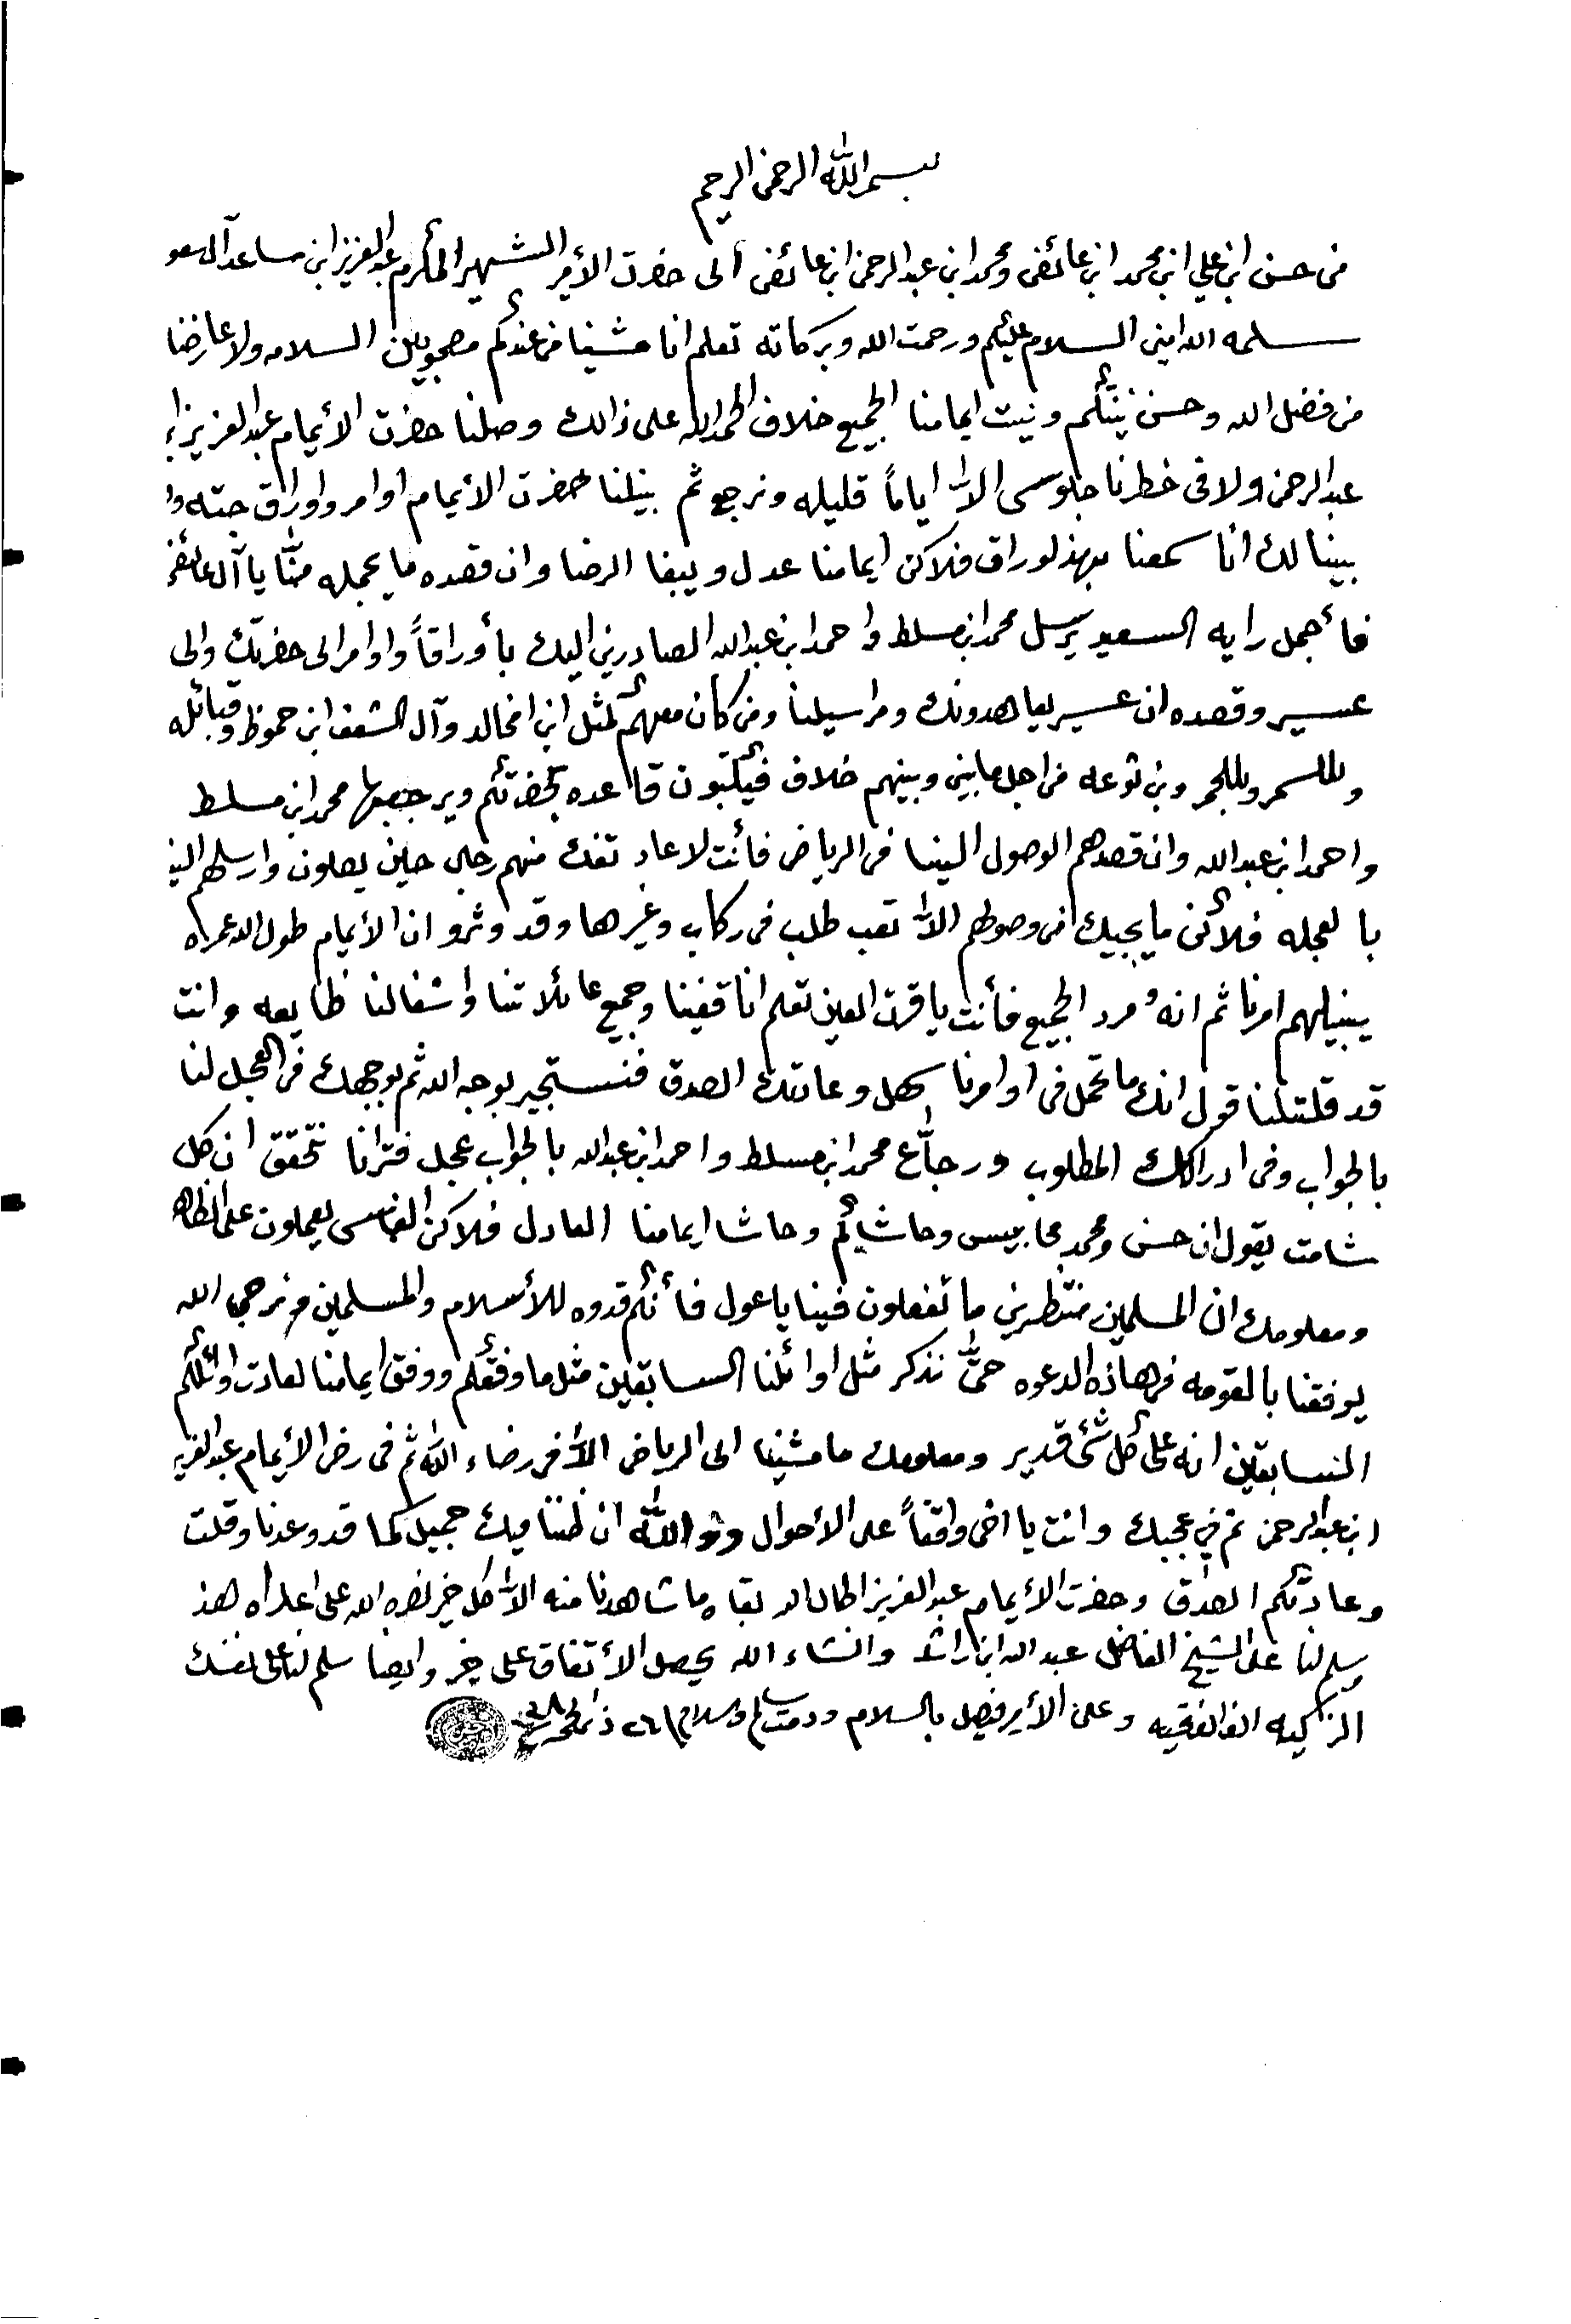 بسم الله الرحمن الرحيم
من حسن ابن علي ابن محمد ابن عائض ومحمد ابن عبدالرحمن ابن عائض الى حضرت الأمير الشهير المكرم عبدالعزيز ابن مساعد آل سعو
سلمه الله امين السلام عليكم ورحمت الله وبركاته تعلم انا مشينا من عندكم مصحوبين السلامه ولا عارضنا
من فضل الله وحسن نيتكم ونيت ايمامنا الجميع خلاف الحمدلله على ذالك وصلنا حضرت الأيمام عبدالعزيز ا
عبدالرحمن ولا في خطرنا جلوسى الاّ اياماً قليله ونرجع ثم بيّنلنا حضرت الأيمام اوامر واوراق جته
بينا لك انا سمعنا بهذلوراق فلاكن ايمامنا عدل ويبغا الرضا وان قصده ما يحمله منّا يا آل عائض
فأجمل رايه السعيد يرسل محمد ابن مسلط واحمد ابن عبدالله الصادرين اليك بأوراقاً واوامر الى حضرتك والى
عسير وقصده ان عسير يعاهدونك ومراسيلنا ومن كان معهم كمثل ابن امخالد وآل الشعف ابن حموظ وقبائله
وللسمر وبللحمر وبن ثوعه من اجل مابيني وبينهم خلاف فيكتبون قاعده بحضرتكم ويرجعها محمد ابن مسلط
واحمد ابن عبدالله وان قصدهم الوصول الينا في الرياض فأنت لا عاد تفك منهم رجل حين يصلون وارسلهم الينا
بالعجله فلأن ما يجيك من وصولهم الاّ تعب طلب في ركاب وغيرها وقد ان الأيمام طول الله عمراه
يبنيلهم امرنا ثم انه مرد الجميع فأنت يا قرت العين تعلم انا قفينا وجميع عائلاتنا واشغالنا ظايعه وانت
قد قلتلنا قول انك ما تحمل في اوامرنا كهل وعادتك الصدق فنستجير بوجه الله ثم بوجهك في العجل لنا
بالجواب وفي ادراكك المطلوب ورجاّع محمد ابن مسلط واحمد ابن عبدالله بالجواب عجل فترانا نتحقق ان كل
شامت يقول ان حسن ومحمد محابيس وحاشاكم وحاشا ايمامنا العادل فلاكن الناس يعملون على الظاه
ومعلومك ان المسلمين منتظرين ما تفعلون فينا يا عول فأنتم قدوه للأسلام والمسلمين ونرجى الله
يوفقنا بالقومه في هاذه الدعوه حتىّ نذكر مثل اوائلنا السابقين مثل ما وفقكم ووفق ايمامنا لعادت اوائلكم
السابقين انه على كل شئ قدير ومعلومك ما مشينا الى الرياض الاّ في رضاء الله ثم في رضى الأيمام عبدالعزيز
ابن عبدالرحمن ثم في عجبك وانت يا اخى واقفاً على الأحوال ووالله ان ظننا فيك جميل كما قد وعدنا وقلت
وعادتكم الصدق وحضرت الأيمام عبدالعزيز اطال الله بقاه ما شاهدنا منه الاّ كل خير نصره الله على اعداه هذ
سلم لنا على الشيخ الفاضل عبدالله ابن راشد وانشاء الله يحصل الأتفاق على خير وايضا سلم لنا على نفسك
الزكيه الف الفقيه وعلى الأمير فيصل بالسلام ودمت سالم والسلام ٢٦ ذي الحجه